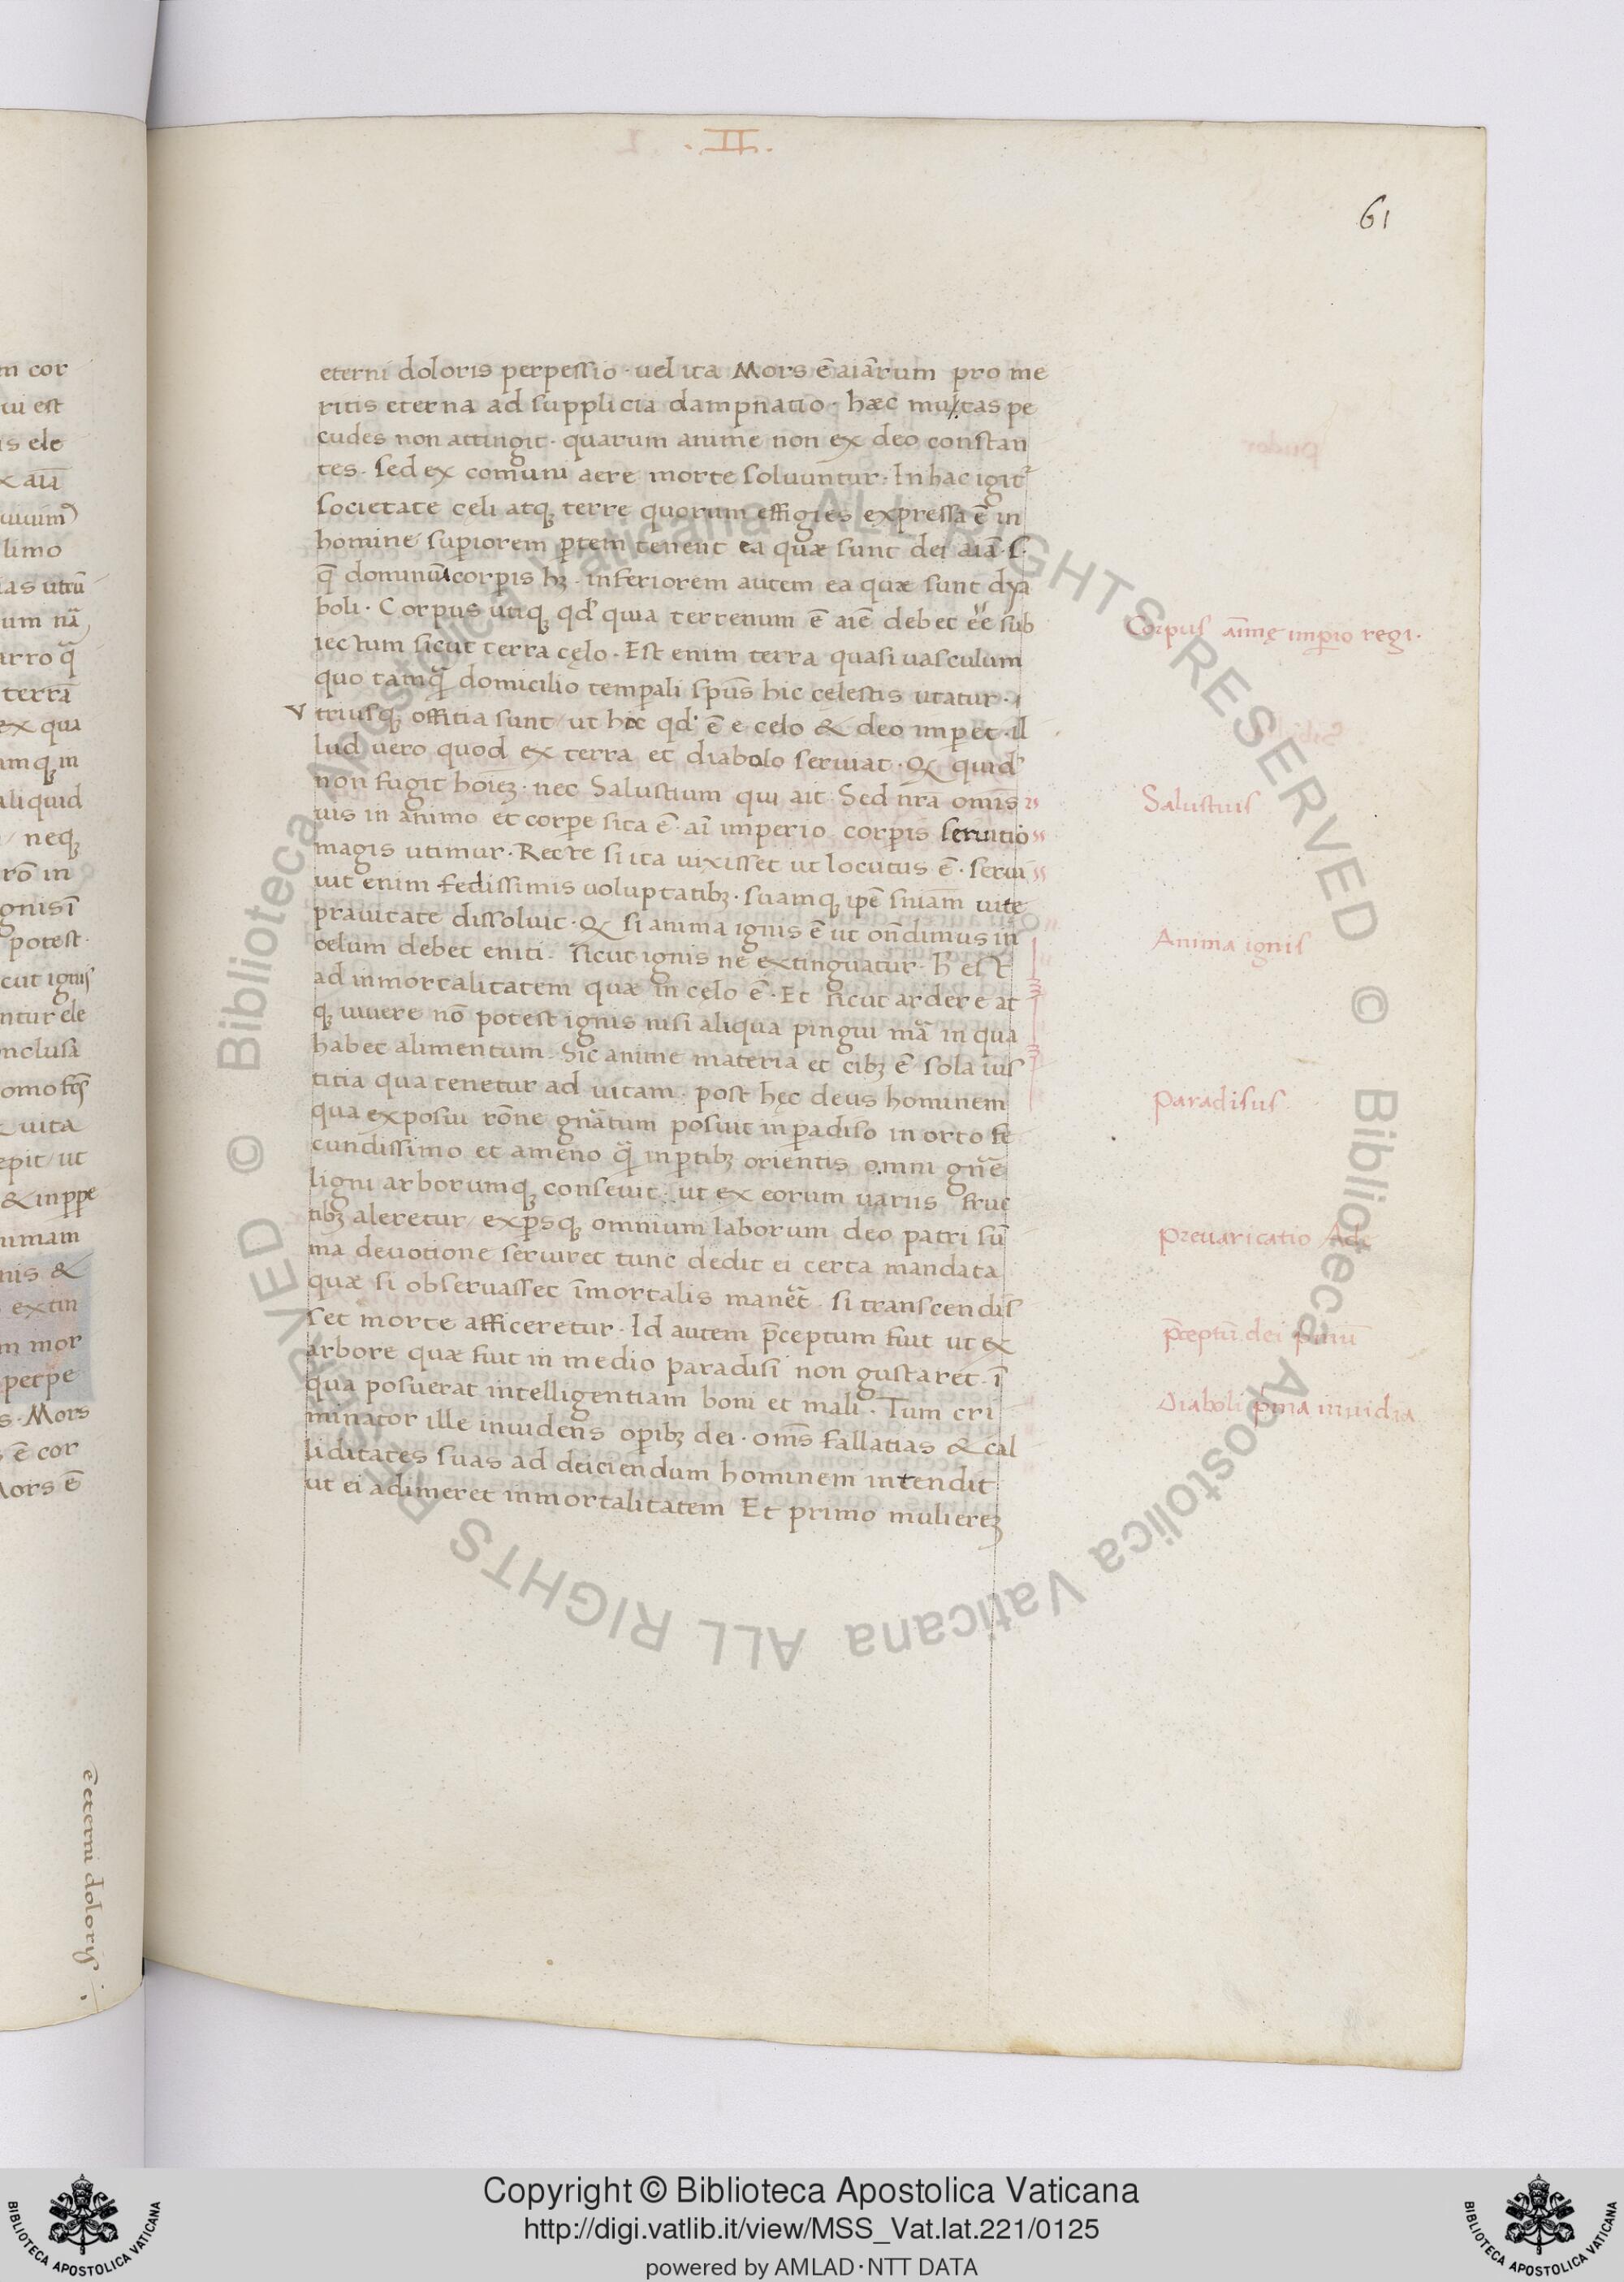 .II.
61
eterni doloris perpessio · uel ita Mors ē aiārum pro me
ritis eterna ad supplicia dampnatio · hæc mutas pe
cudes non attingit · quarum anime non ex deo constan
tes · sed ex comuni aere morte soluuntur · In hac igit᷑
societate celi atqꝫ terre quorum effigies expressa ē in
homine suꝑiorem ꝑtem tenent ea quæ sunt dei aiā · s ·
q̄ dominiū corꝑis hꝫ · inferiorem autem ea quæ sunt dya
boli · Corpus utiqꝫ qd̓ quia terrenum ē aiē debet ēē sub
iectum sicut terra cęlo · Est enim terra quasi uasculum
quo tamq̄ domicilio temꝑali spūs hic celestis utatur ·
V triusqꝫ offitia sunt / ut hoc qd̓ ē e celo & deo imꝑet · il
lud uero quod ex terra et diabolo seruiat · Q̃ quid̓
non fugit hoīeꝫ · nec Salustium qui ait · Sed nr̄a omīs
uis in animo et corꝑe sita ē · aī imperio corꝑis seruitio
magis utimur · Recte si ita uixisset ut locutus ē · serui
uit enim fedissimis uoluptatibꝫ · suamqꝫ ipē sn̄iam uite
prauitate dissoluit · Q̃ si anima ignis ē ut on̄dimus in
celum debet eniti · sicut ignis ne extinguatur · h̄ est
ad inmortalitatem quæ in cęlo ē · Et sicut ardere at
qꝫ uiuere nō potest ignis nisi aliqua pingui mā in qua
habet alimentum · Sic anime materia et cibꝫ ē sola ius
titia qua tenetur ad uitam · post hęc deus hominem
qua exposui rōne gnātum posuit in ꝑadiso in orto fe
cundissimo et ameno q̄ in ꝑtibꝫ orientis omni gn̄e
ligni arborumqꝫ conseuit · ut ex eorum uariis fruc
tibꝫ aleretur / exꝑsqꝫ omnium laborum deo patri sū
ma deuotione seruiret tunc dedit ei certa mandata
quæ si obseruasset īmortalis manēt · si transcendis
set morte afficeretur · Id autem p̄ceptum fuit ut ex
arbore quæ fuit in medio paradisi non gustaret · ī
qua posuerat intelligentiam boni et mali · Tum cri
minator ille inuidens oꝑibꝫ dei · om̄s fallatias & cal
liditates suas ad deiciendum hominem intendit
ut ei adimeret inmortalitatem Et primo muliereꝫ
Corpus aīmę imꝑio regi ·
Salustius
Anima ignis
Paradisus
Preuaricatio Adę
p̄ceptū dei pimū
Diaboli pima inuidia
ē eterni doloris
Copyright © Biblioteca Apostolica Vaticana
http://digi.vatlib.it/view/MSS_Vat.lat.221/0125
powered by AMLAD·NTT DATA
BIBLIOTECA APOSTOLICA VATICANA
BIBLIOTECA APOSTOLICA VATICANA
© Biblioteca Apostolica Vaticana ALL RIGHTS RESERVED © Biblioteca Apostolica Vaticana ALL RIGHTS RESERVED